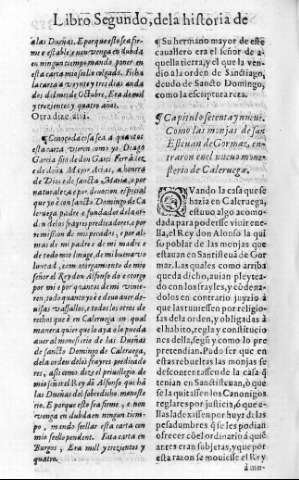 Libro Segundo, dela historia de
alas Dueñas. E porque esto sea fir-
me e estable e non venga en dubda
en ningun tiempo mando poner en
esta carta mio sello colgado. Fecha
la carta a veynte y tres dias anda-
dos del mes de Octubre, Era de mil
y trezientos y quatro años.
Otra dize assi.
Conoscida cosa sea a quantos
esta carta vieren como yo Diago
Garcia fijo de don Garci Ferrãdez
e de doña Mayor Arias, a honor
de Dios e de sancta Maria, e por
naturaleza e por deuocion especial
que yo è con sancto Domingo de Ca
leruega padre e fundador dela or-
den delos frayres predicadores, e por
remission de mis pecados, e por al-
mas de mi padre e de mi madre e
de todo mio linage, de mi buena vo
luntad, con otorgamiento de mio
señor el Rey don Alfonso do e otorgo
por mi e por quantos de mi vinie-
ren, todo quanto yo è e deuo auer de-
uisas Vassallos, e todos los otros de-
rechos que è en Caleruega en qual
manera quier que lo aya e lo pueda
auer al monesterio de las Dueñas
de sancto Domingo de Caleruega,
dela orden delos frayres predicado
res, assi como dize el priuillegio de
mio señor el Rey dõ Alfonso que hã
las Dueñas del sobredicho moneste
rio. E porque esto sea firme, e non
venga en dubda en ningun tiem-
po, mando sellar esta carta con
mio seello pendent. Esta carta en
Burgos, Era mil y trezientos y
quatro.
¶ Su hermano mayor de este
cauallero era el señor de a-
quella tierra, y el que la ven-
dio a la orden de Santiago,
deudo de Santo Domingo,
como la escriptura reza.
¶ Capitulo setenta y nueue.
Como las monjas de san
Esteuan de Gormaz, en-
traron en el nueuo mone-
sterio de Caleruega.
QVando la casa que se
hazia en Caleruega,
estuuo algo acomo-
dada para poderse viuir en e-
lla, el Rey don Alfonso la qui
so poblar de las monjas que
estauan en Santisteuã de Gor-
maz. Las quales como arriba
queda dicho, auian pleytea-
do con los frayles, y cõdena-
dolos en contrario juyzio à
que las tuuiessen por religio-
sas dela orden, y obligadas a
el habito, regla y constitucio
nes della, segũ y como lo pre-
tendian. Pudo ser que en
estas rebueltas las monjas se
descontentassen de la casa q̃
tenian en Santisteuan, ò que
se la quitassen los Canonigos
reglares por justicia, ò que e-
llas la dexassen por huyr de las
pesadumbres q̃ se les podian
ofrecer cõ el ordinario à quiẽ
antes eran subjetas, y que por
esta razon se mouiesse el Rey